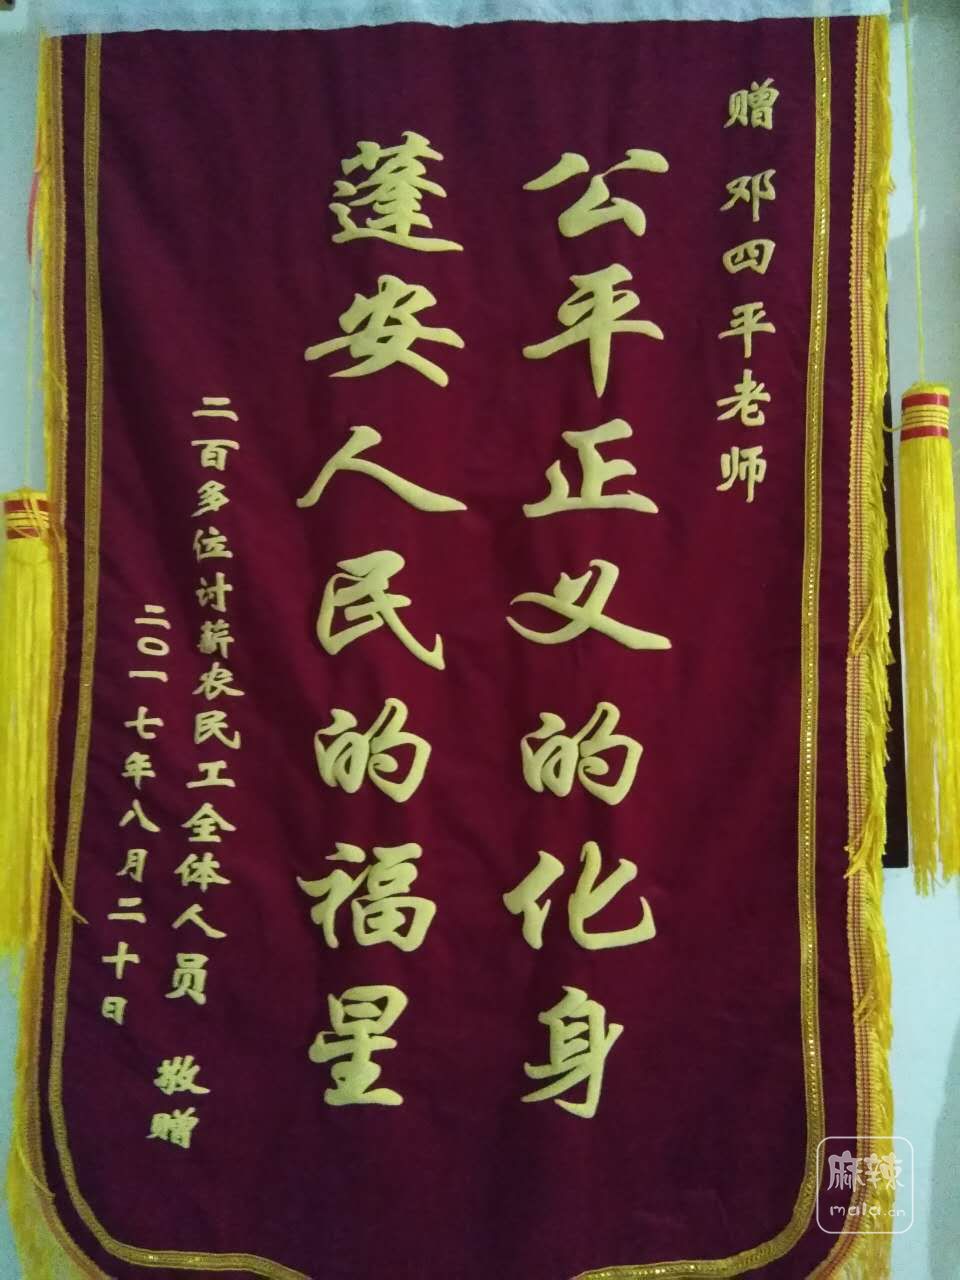 赠 邓四平老师
公平正义的化身
蓬安人民的福星
二百多位讨薪农民工全体人员 敬赠
二〇一七年八月二十日
麻辣
mala.cn